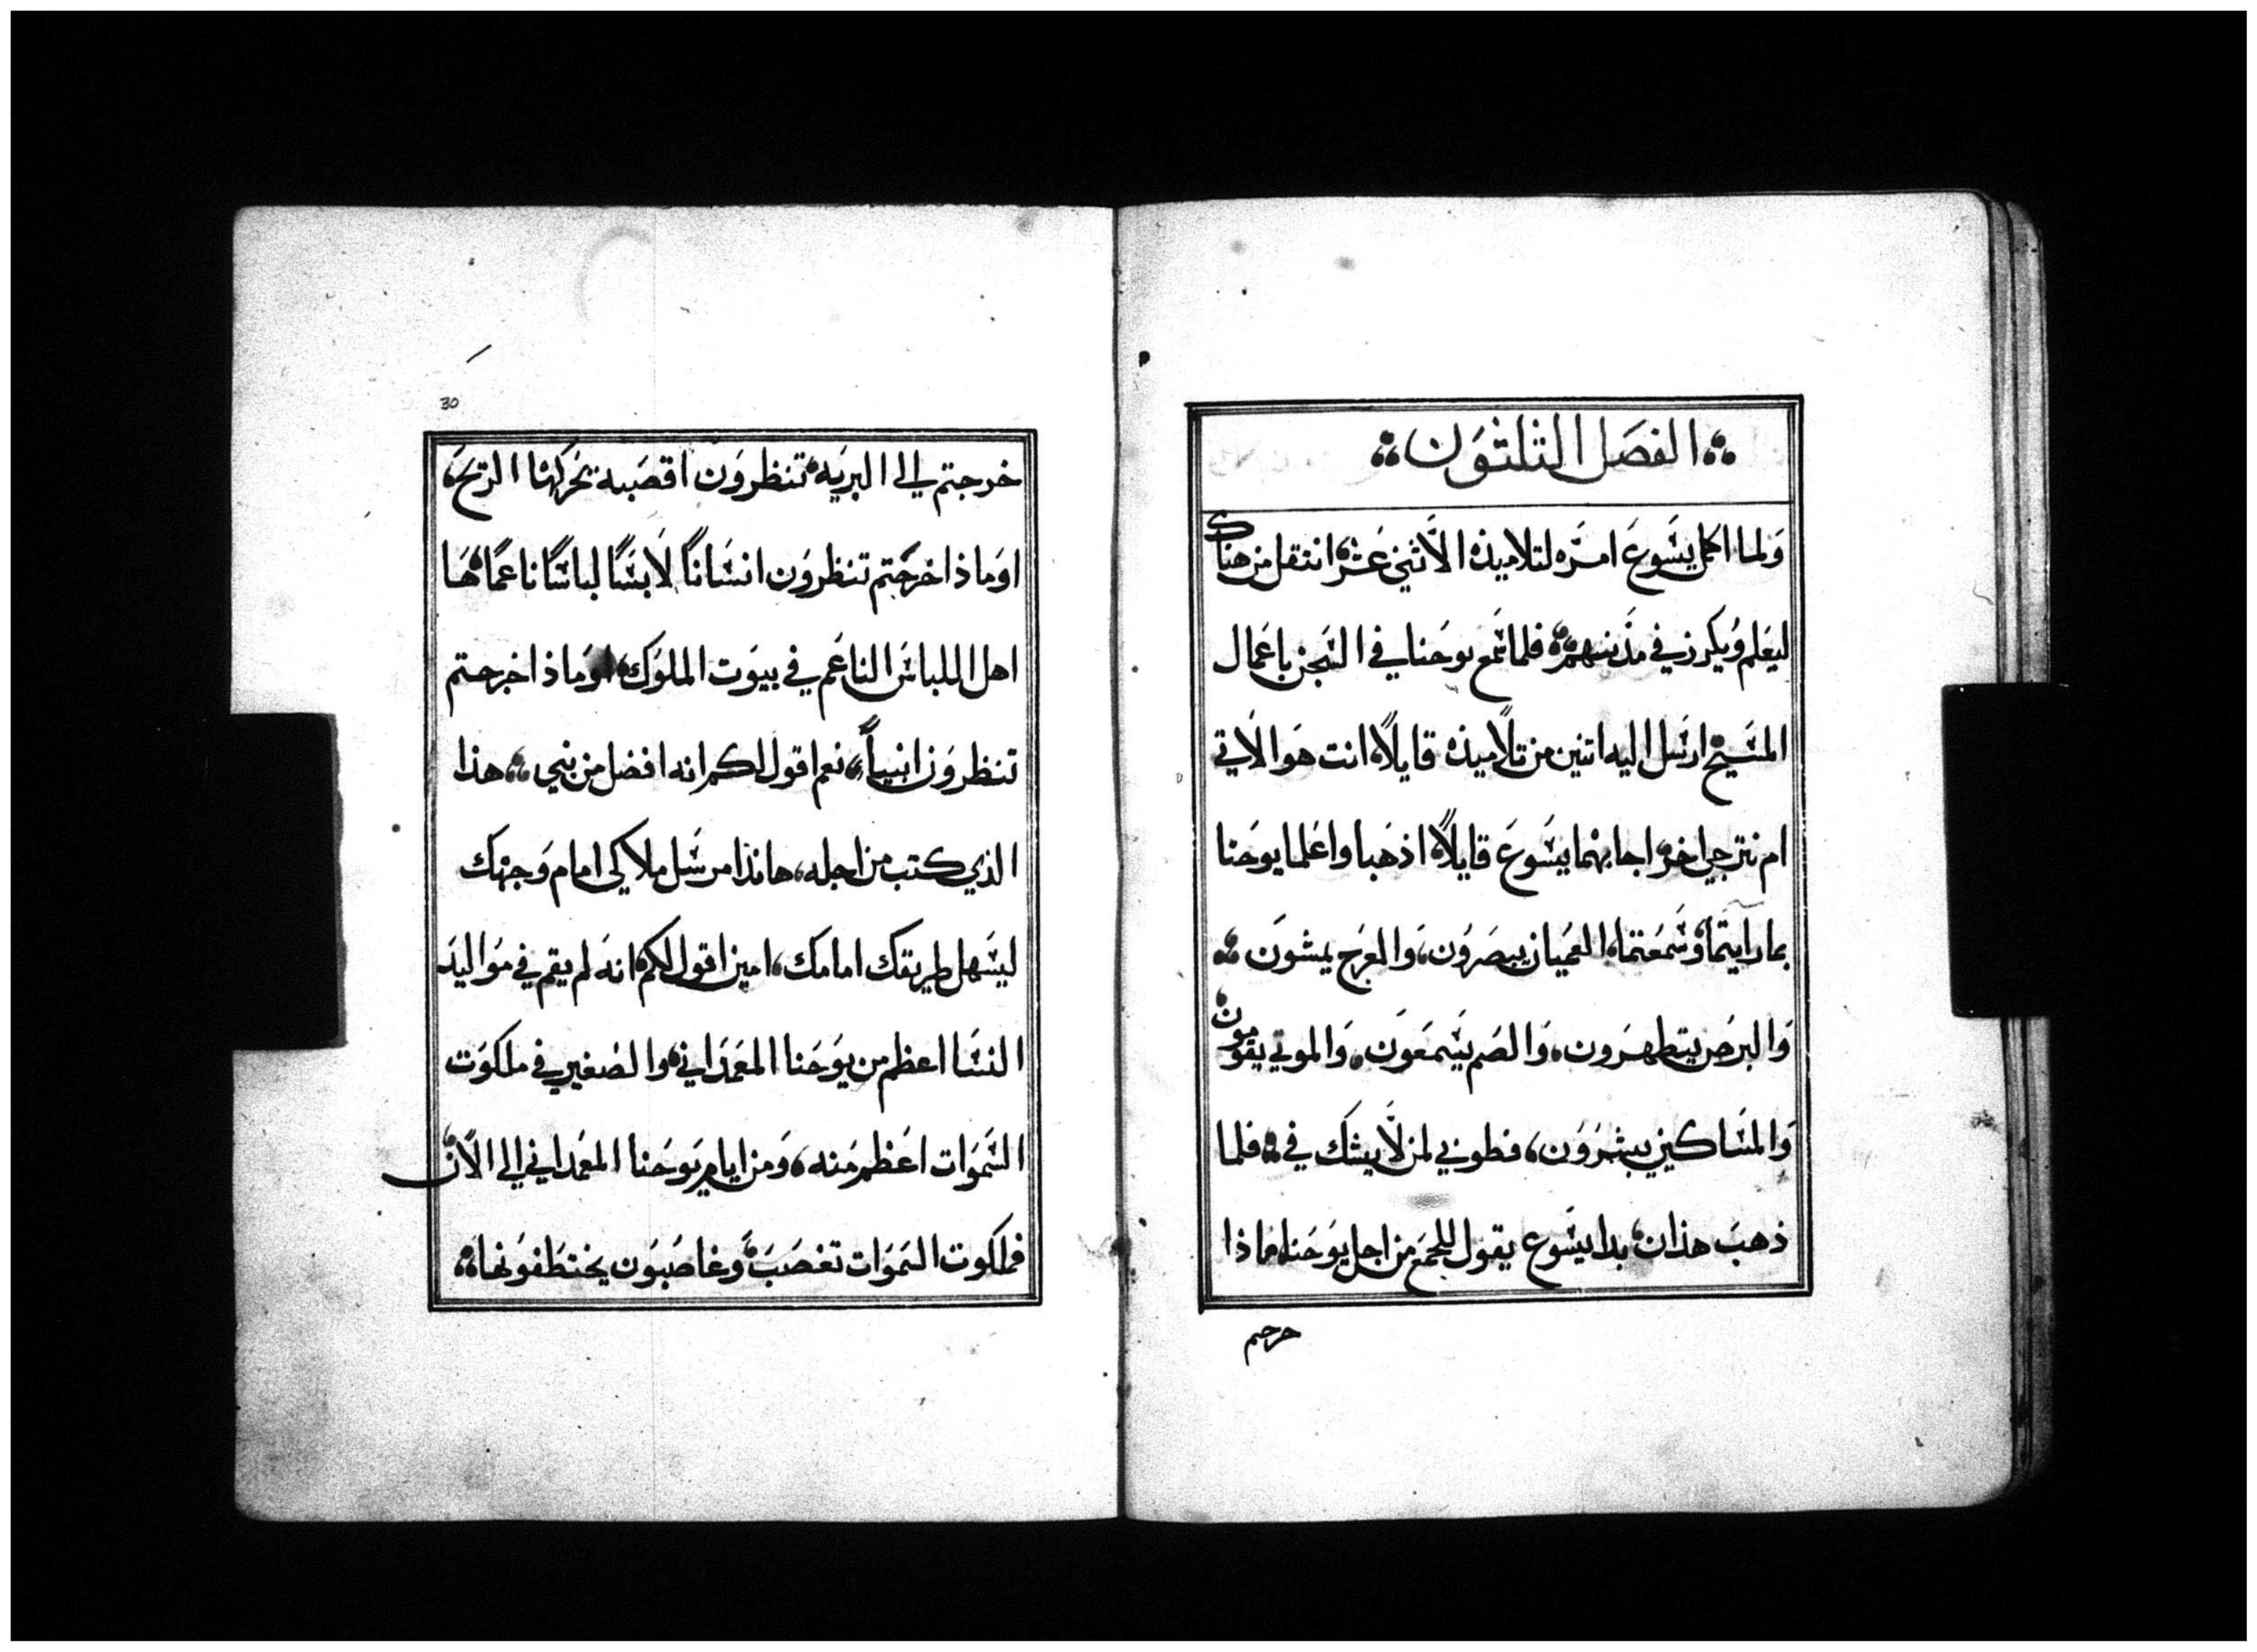 الفصل الثلثون
ولما اكمل يسوع امره لتلاميذه الاثني عشر انتقل من هناك
ليعلم ويكرز في مدينتهم فلما سمع يوحنا في السجن باعمال
المسيح ارسل اليه اتنين من تلاميذه قايلاً انت هو الاتي
ام نترجي اخر اجابهما يسوع قايلاً اذهبا واعلما يوحنا
بما رايتما وسمعتما العميان يبصرون، والعرج يمشون
والبرص يتطهرون، والصم يسمعون، والموتي يقومون
والمساكين يبشرون، فطوبي لمن لا يشك في فلما
ذهب هذان بدا يسوع يقول للجمع من اجل يوحنا ماذا
خرجتم
30
خرجتم الي البريه تنظرون اقصبه تحركها الريح
اوماذا خرجتم تنظرون انساناً لابساً لباساً ناعماً ها
اهل اللباس الناعم في بيوت الملوك، اوماذا خرجتم
تنظرون انبياً، نعم اقول لكم انه افضل من نبي، هذا
الذي كتب من اجله، هانذا مرسل ملاكي امام وجهك
ليسهل طريقك امامك، امين اقول لكم انه لم يقم في مواليد
النسا اعظم من يوحنا المعمداني والصغير في ملكوت
السموات اعظم منه، ومن ايام يوحنا المعمداني الي الان
فملكوت السموات تغصب وغاصبون يختطفونها